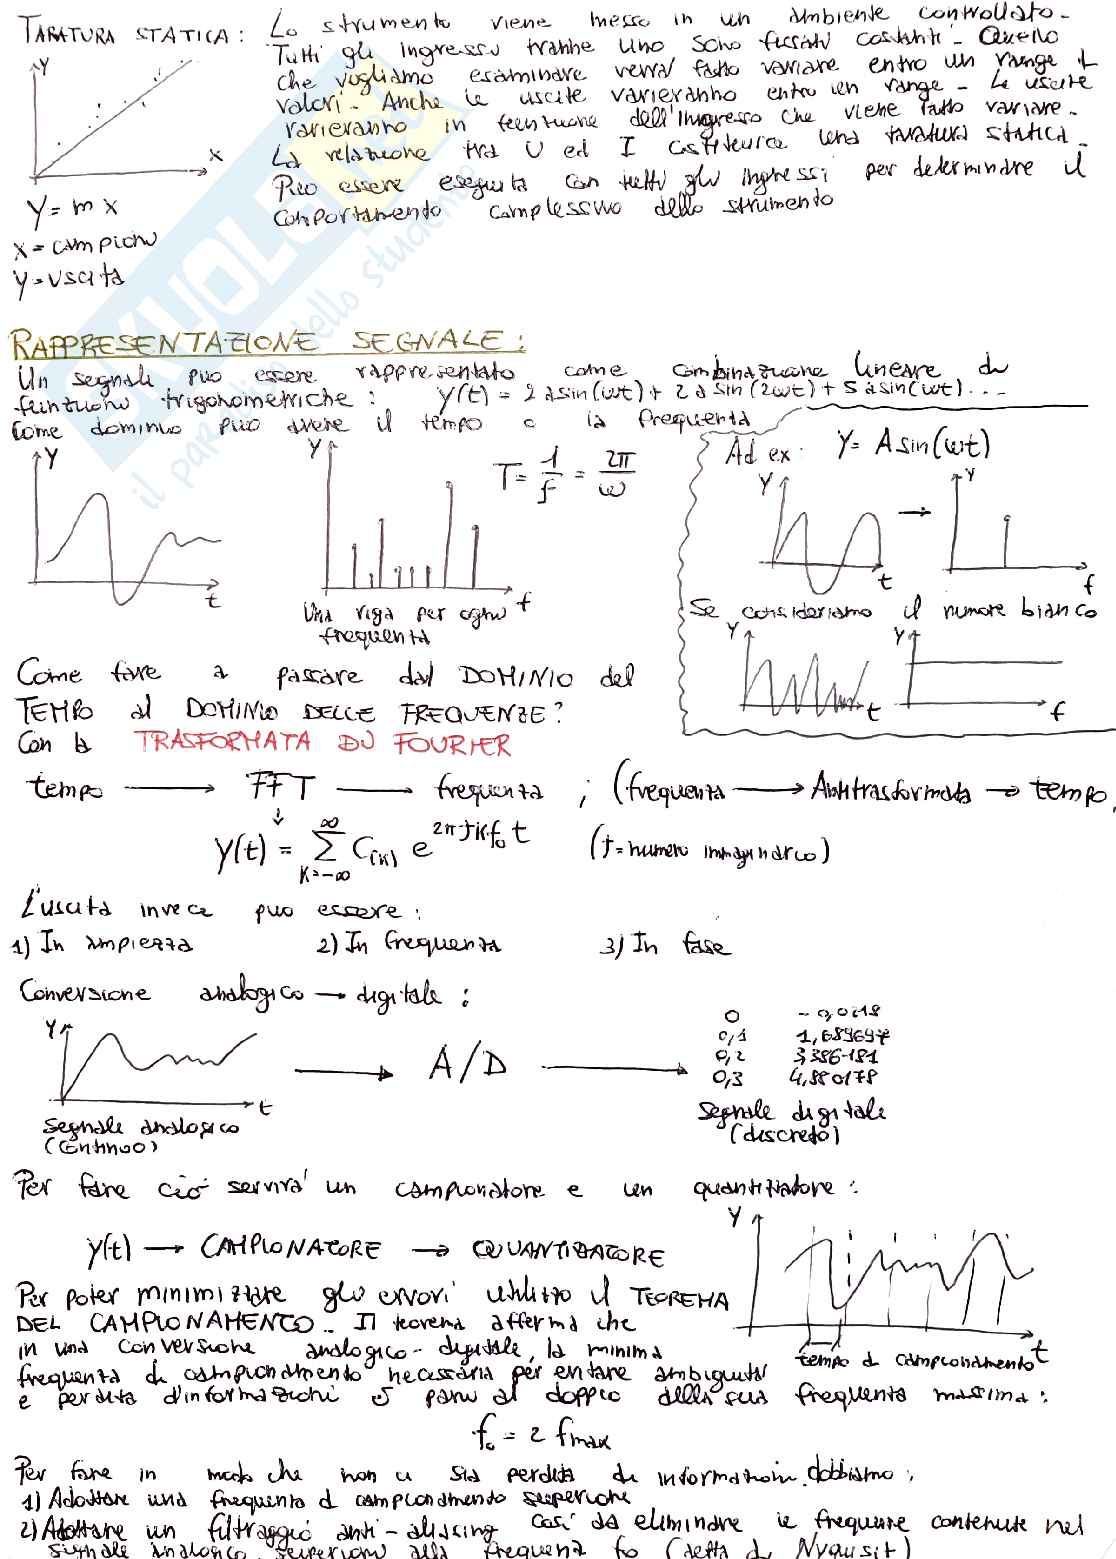 TARATURA STATICA: Lo strumento viene messo in un ambiente controllato.
Tutti gli ingressi tranne uno sono fissati costanti. Quello
che vogliamo esaminare verrà fatto variare entro un range di
valori. Anche le uscite varieranno entro un range. Le uscite
varieranno in funzione dell'ingresso che viene fatto variare.
La relazione tra U ed I costituisce una taratura statica.
Può essere eseguita con tutti gli ingressi per determinare il
comportamento complessivo dello strumento
Y
X
Y = m X
X = campioni
Y = uscita
SKUOLA.net
il paradiso dello studente
RAPPRESENTAZIONE SEGNALE:
Un segnale può essere rappresentato come combinazione lineare di
funzioni trigonometriche: y(t) = 2 a sin(ωt) + 2 a sin(2ωt) + 5 a sin(ωt)...
Come dominio può avere il tempo o la frequenza
Y
t
Y
f
Una riga per ogni
frequenza
T = 1/f = 2π/ω
Ad ex. Y = A sin(ωt)
Y
t
Y
f
Se consideriamo il rumore bianco
Y
t
Y
f
Come fare a passare dal DOMINIO del
TEMPO al DOMINIO DELLE FREQUENZE?
Con la TRASFORMATA DI FOURIER
tempo → FFT → frequenza ; (frequenza → Antitrasformata → tempo.
y(t) = ∑ K=-∞ ∞ C(K) e^2πJKf₀t (J = numero immaginario)
L'uscita invece può essere:
1) In ampiezza 2) In frequenza 3) In fase
Conversione analogico → digitale:
Y
t
Segnale analogico
(continuo)
→ A/D →
0 -0,0218
0,1 1,689697
0,2 3,386181
0,3 4,880178
Segnale digitale
(discreto)
Per fare ciò servirà un campionatore e un quantizzatore:
y(t) → CAMPIONATORE → QUANTIZZATORE
Y
t
tempo di campionamento
Per poter minimizzare gli errori utilizzo il TEOREMA
DEL CAMPIONAMENTO. Il teorema afferma che
in una conversione analogico-digitale, la minima
frequenza di campionamento necessaria per evitare ambiguità
e perdita d'informazioni è pari al doppio della sua frequenza massima:
f₀ = 2 fmax
Per fare in modo che non ci sia perdita di informazioni dobbiamo:
1) Adottare una frequenza di campionamento superiore
2) Adottare un filtraggio anti-aliasing così da eliminare le frequenze contenute nel
segnale analogico superiori alla frequenza fo (detta di Nyquist)